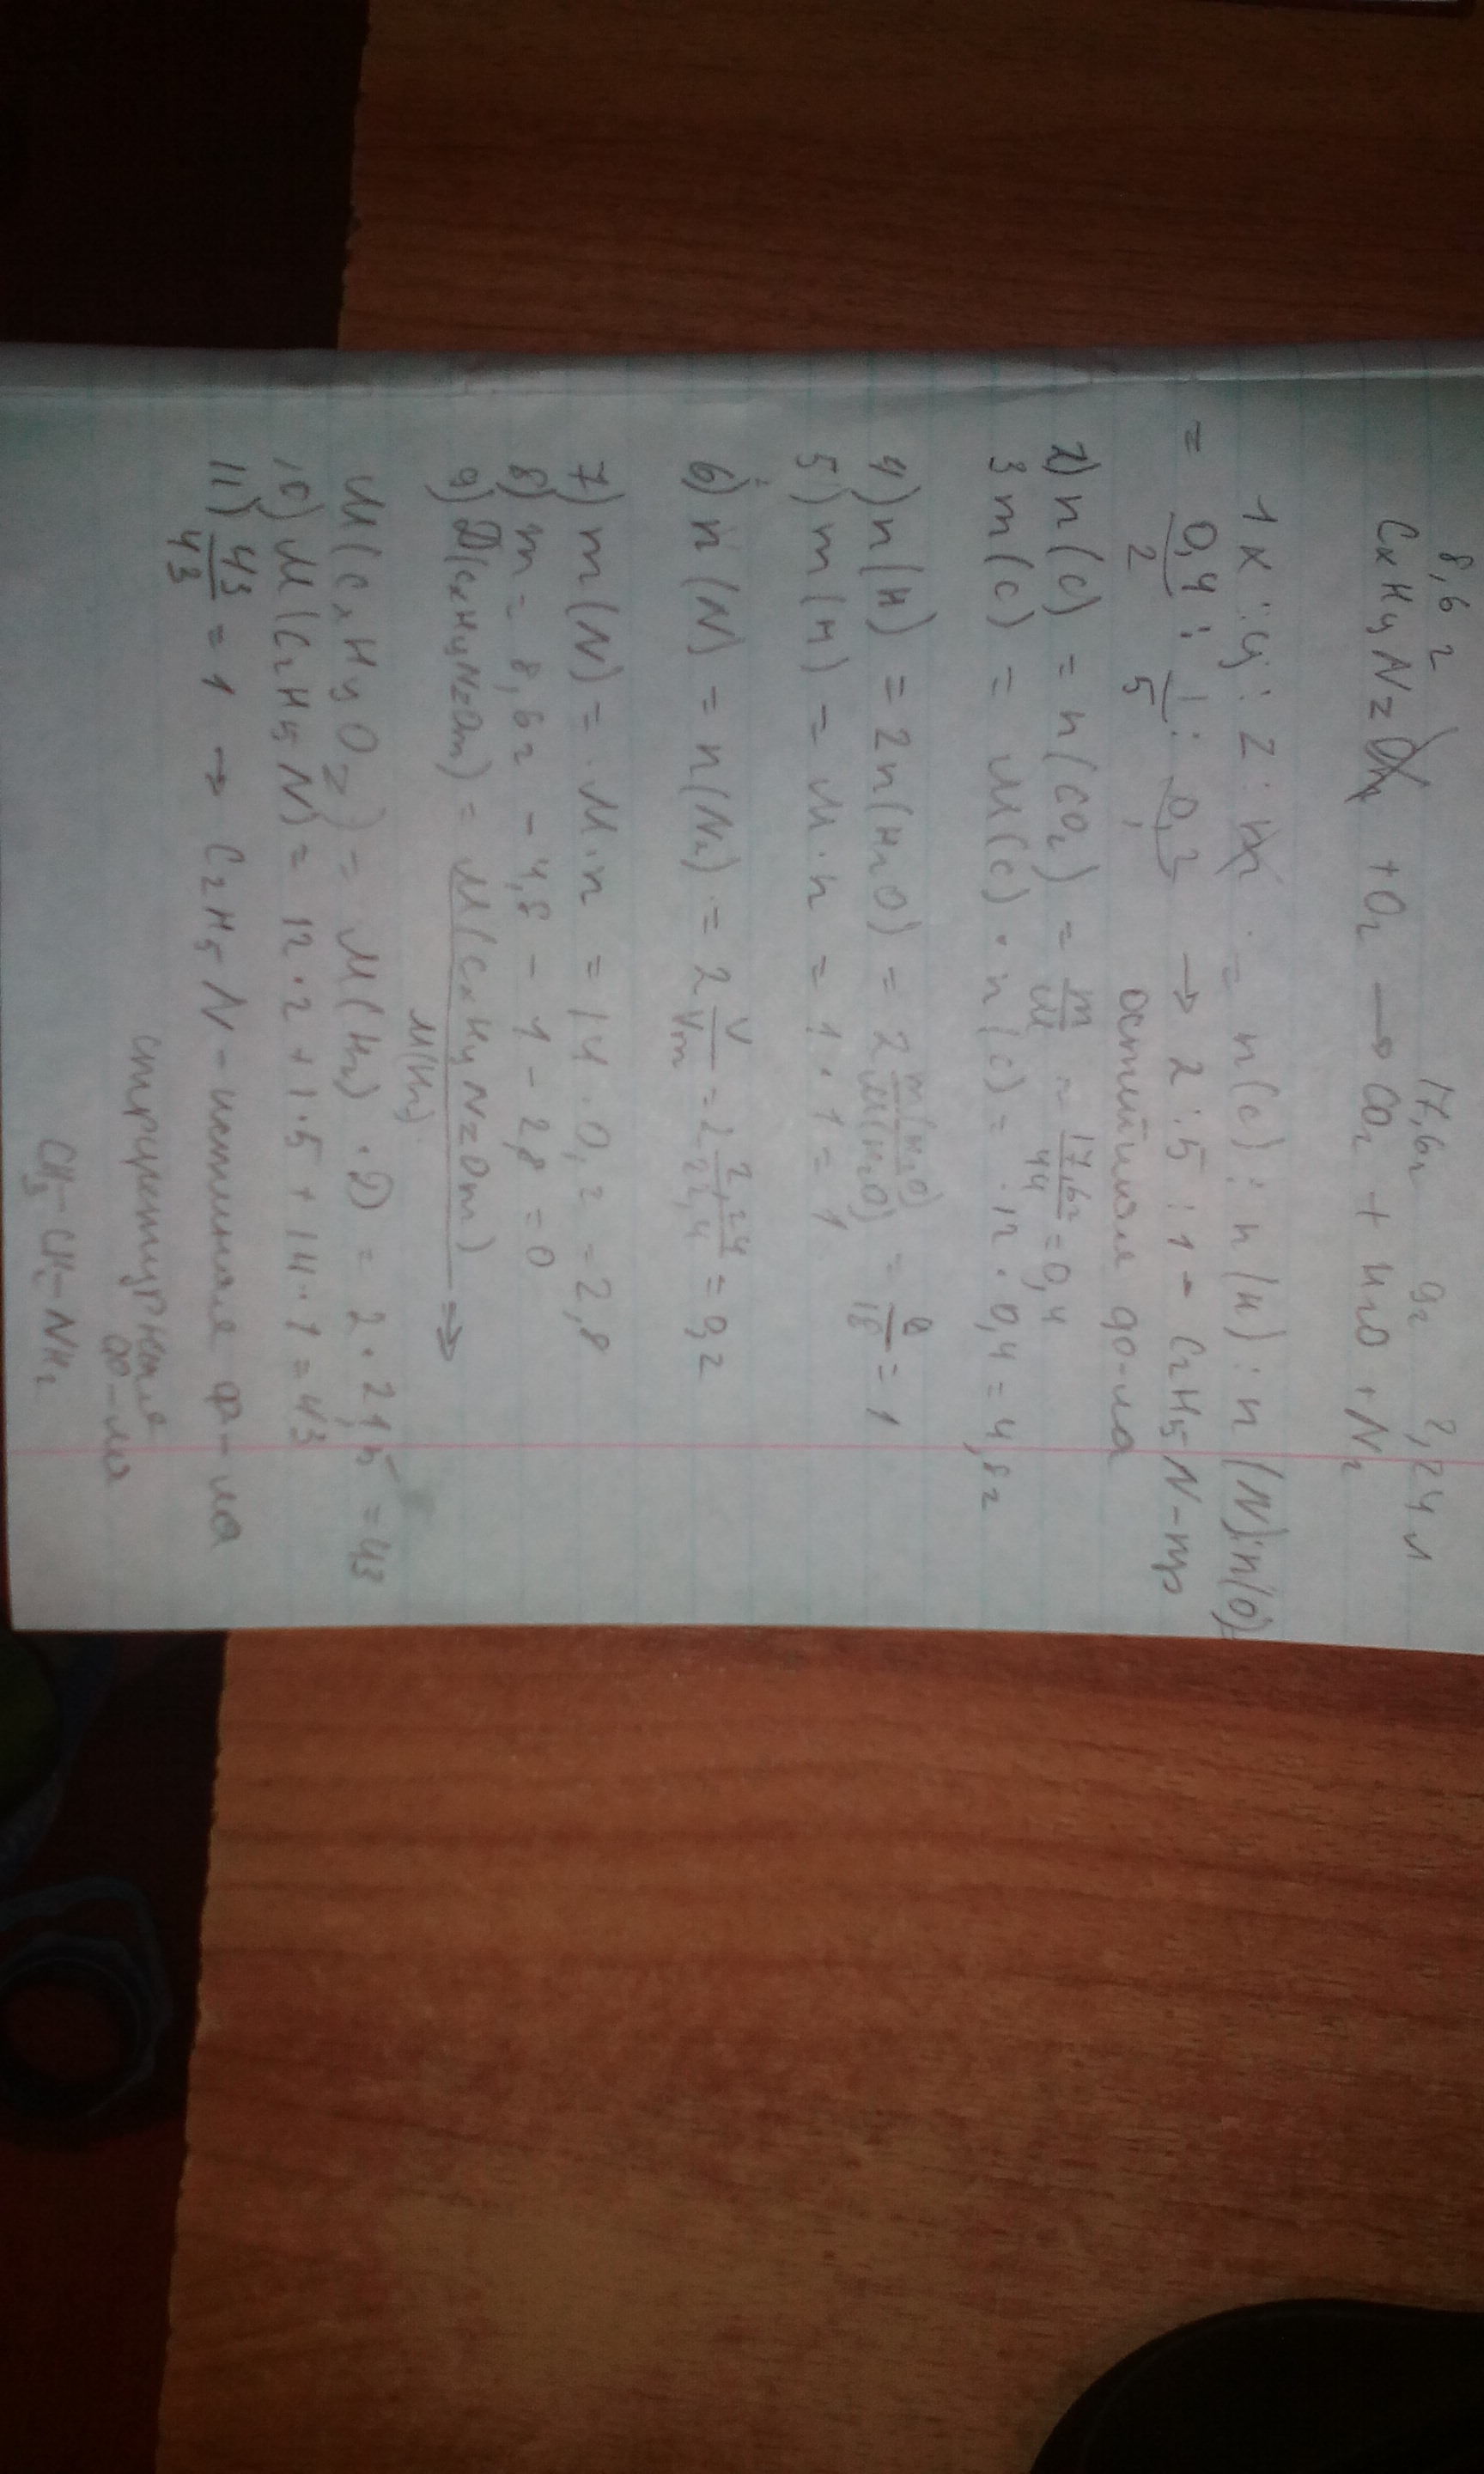 8,6 г 17,6г 9г 2,24 л
CxHyNzOm + O₂ → CO₂ + H₂O + N₂
1 x : y : z : m = n(C) : n(H) : n(N) : n(O)
= 0,4/2 : 1/5 : 0,2 → 2 : 5 : 1 - C₂H₅N - пр
остейшая фо-ла
2) n(C) = n(CO₂) = m/M = 17,6г/44 = 0,4
3 m(C) = M(C) · n(C) = 12 · 0,4 = 4,8г
4) n(H) = 2n(H₂O) = 2 m(H₂O)/M(H₂O) = 9/18 = 1
5) m(H) = M · n = 1 · 1 = 1
6) n(N) = n(N₂) = 2 V/Vm = 2 2,24/22,4 = 0,2
7) m(N) = M · n = 14 · 0,2 = 2,8
8) m = 8,6г - 4,8 - 1 - 2,8 = 0
9) D(CxHyNzOm) = M(CxHyNzOm)/M(H₂) →
M(CxHyOz) = M(H₂) · D = 2 · 21,5 = 43
10) M(C₂H₅N) = 12 · 2 + 1 · 5 + 14 · 1 = 43
11) 43/43 = 1 → C₂H₅N - истинная ф-ла
структурная
фо-ла
CH₃-CH₂-NH₂